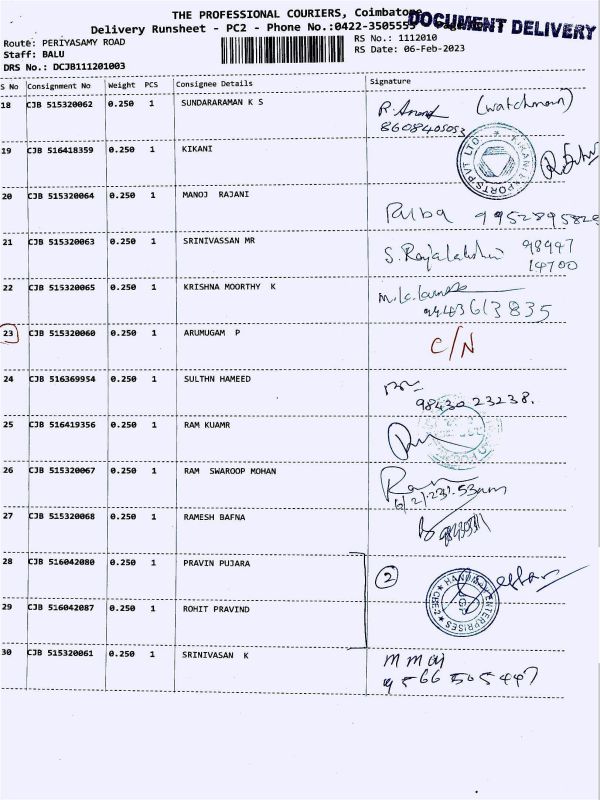 THE PROFESSIONAL COURIERS, Coimbatore
DOCUMENT DELIVERY
Delivery Runsheet - PC2 - Phone No.:0422-3505555
Route: PERIYASAMY ROAD
RS No.: 1112010
Staff: BALU
RS Date: 06-Feb-2023
DRS No.: DCJB111201003
S No Consignment No Weight PCS Consignee Details Signature
18 CJB 515320062 0.250 1 SUNDARARAMAN K S R. Anand (watchman)
8608405053
19 CJB 516418359 0.250 1 KIKANI
20 CJB 515320064 0.250 1 MANOJ RAJANI
21 CJB 515320063 0.250 1 SRINIVASSAN MR S. Rajalakshmi 98947
14700
22 CJB 515320065 0.250 1 KRISHNA MOORTHY K
9443613835
23 CJB 515320060 0.250 1 ARUMUGAM P C/N
24 CJB 516369954 0.250 1 SULTHN HAMEED
98430 23238.
25 CJB 516419356 0.250 1 RAM KUAMR
26 CJB 515320067 0.250 1 RAM SWAROOP MOHAN
27 CJB 515320068 0.250 1 RAMESH BAFNA
28 CJB 516042080 0.250 1 PRAVIN PUJARA 2
29 CJB 516042087 0.250 1 ROHIT PRAVIND
ENTERPRISES
30 CJB 515320061 0.250 1 SRINIVASAN K
9566505447